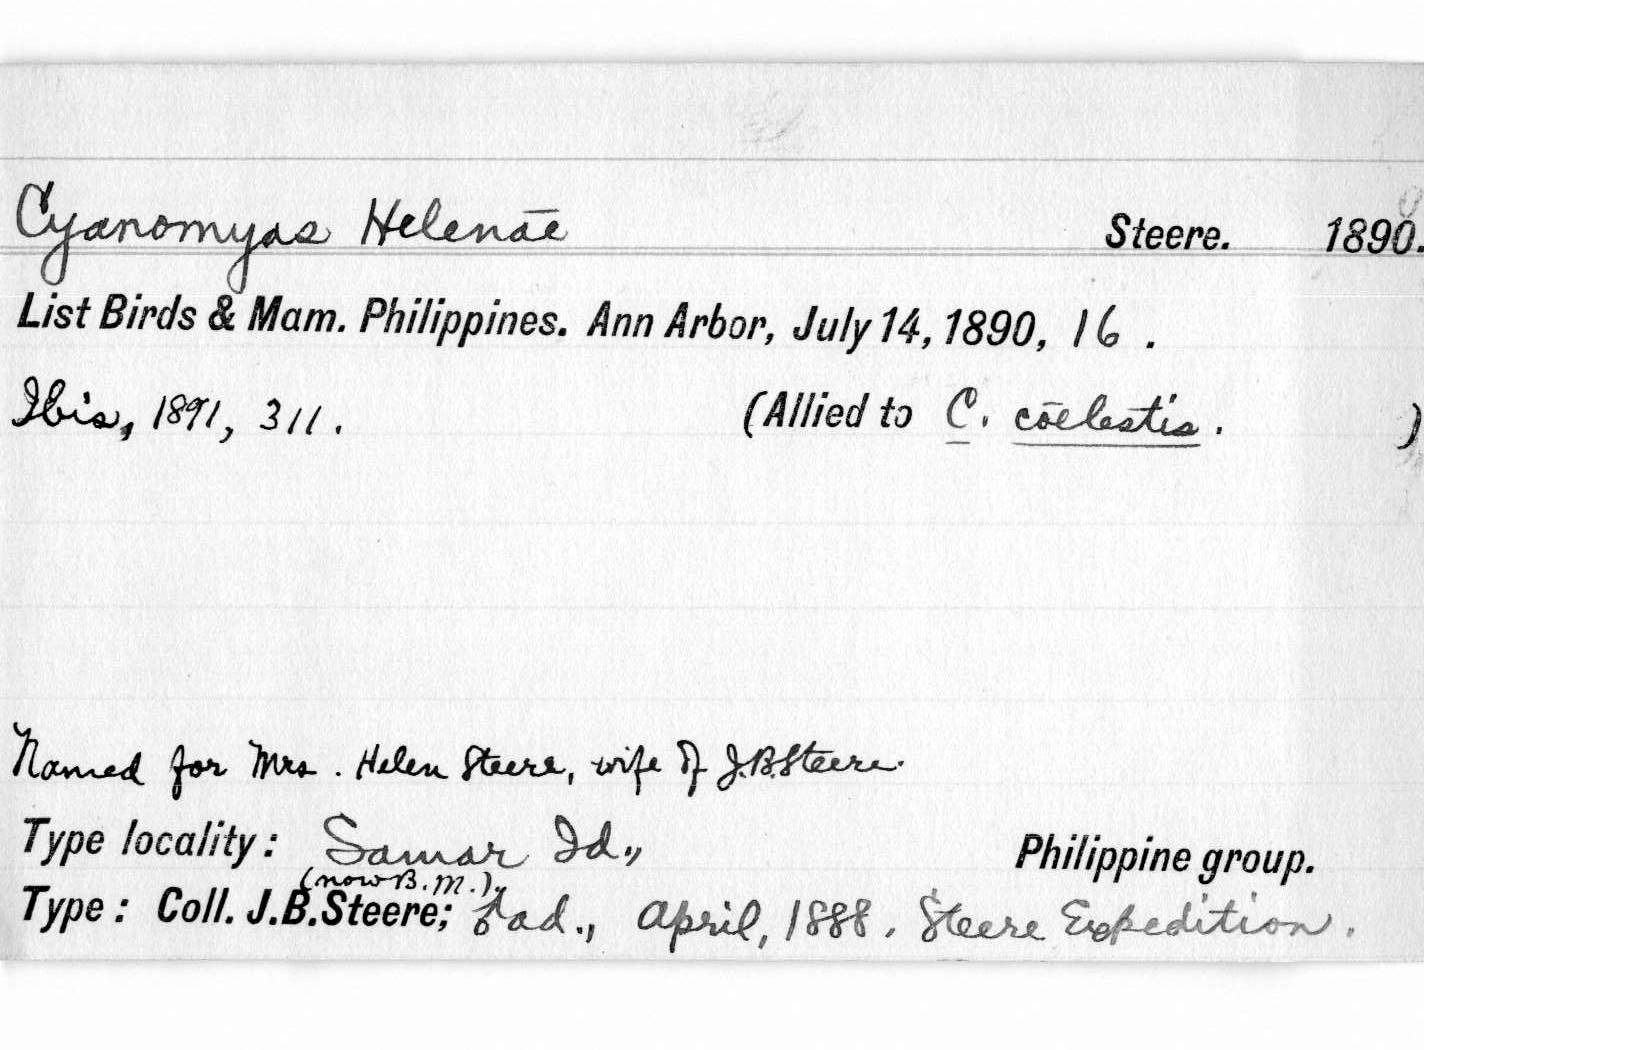 Cyanomyas Helenae Steere. 1890.
List Birds & Mam. Philippines. Ann Arbor, July 14, 1890, 16.
Ibis, 1891, 311. (Allied to C. coelestis. )
Named for Mrs. Helen Steere, wife of J.B. Steere.
Type locality: Samar Id., Philippine group.
(now B.M.).
Type: Coll. J.B. Steere; ad., April, 1888. Steere Expedition.